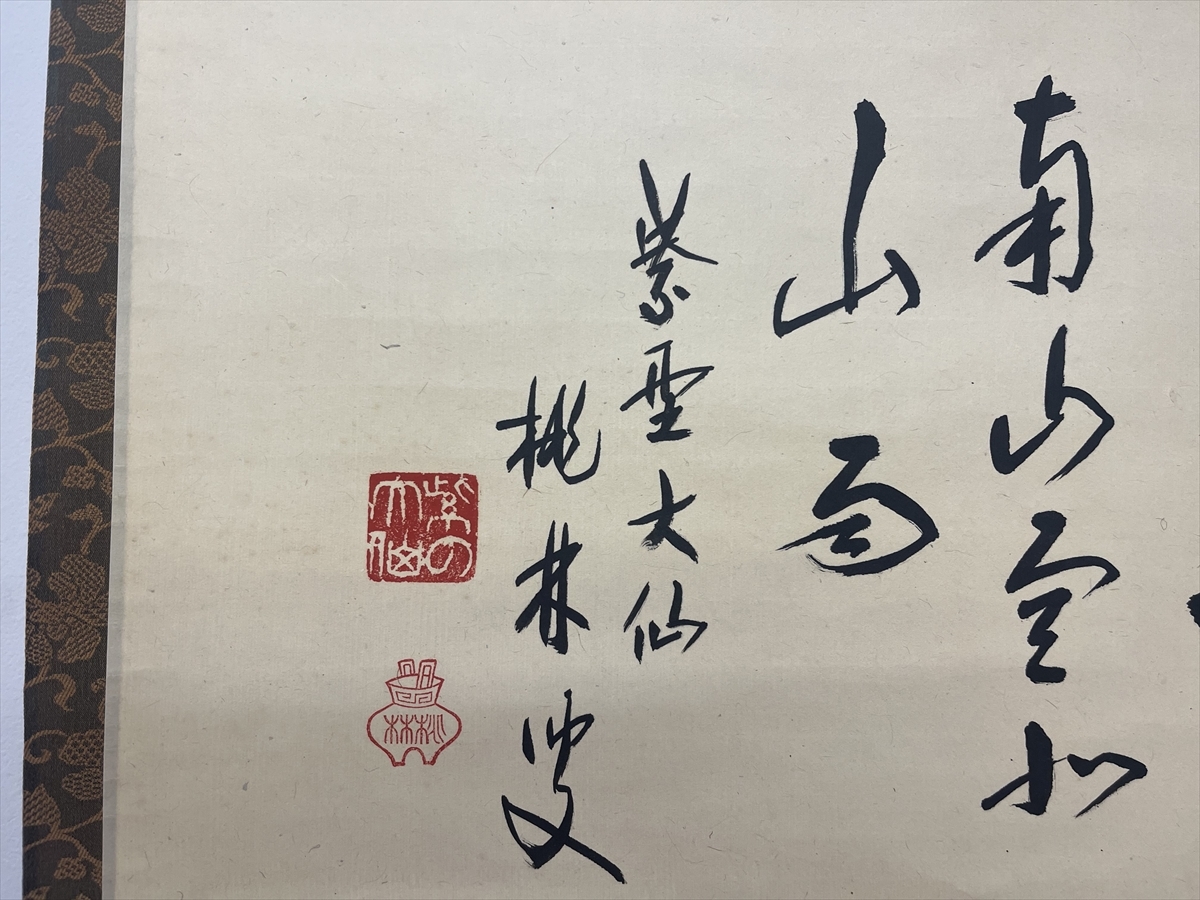 南山雲北
山雨
紫野大仙
桃林叟
紫の大仙
桃林